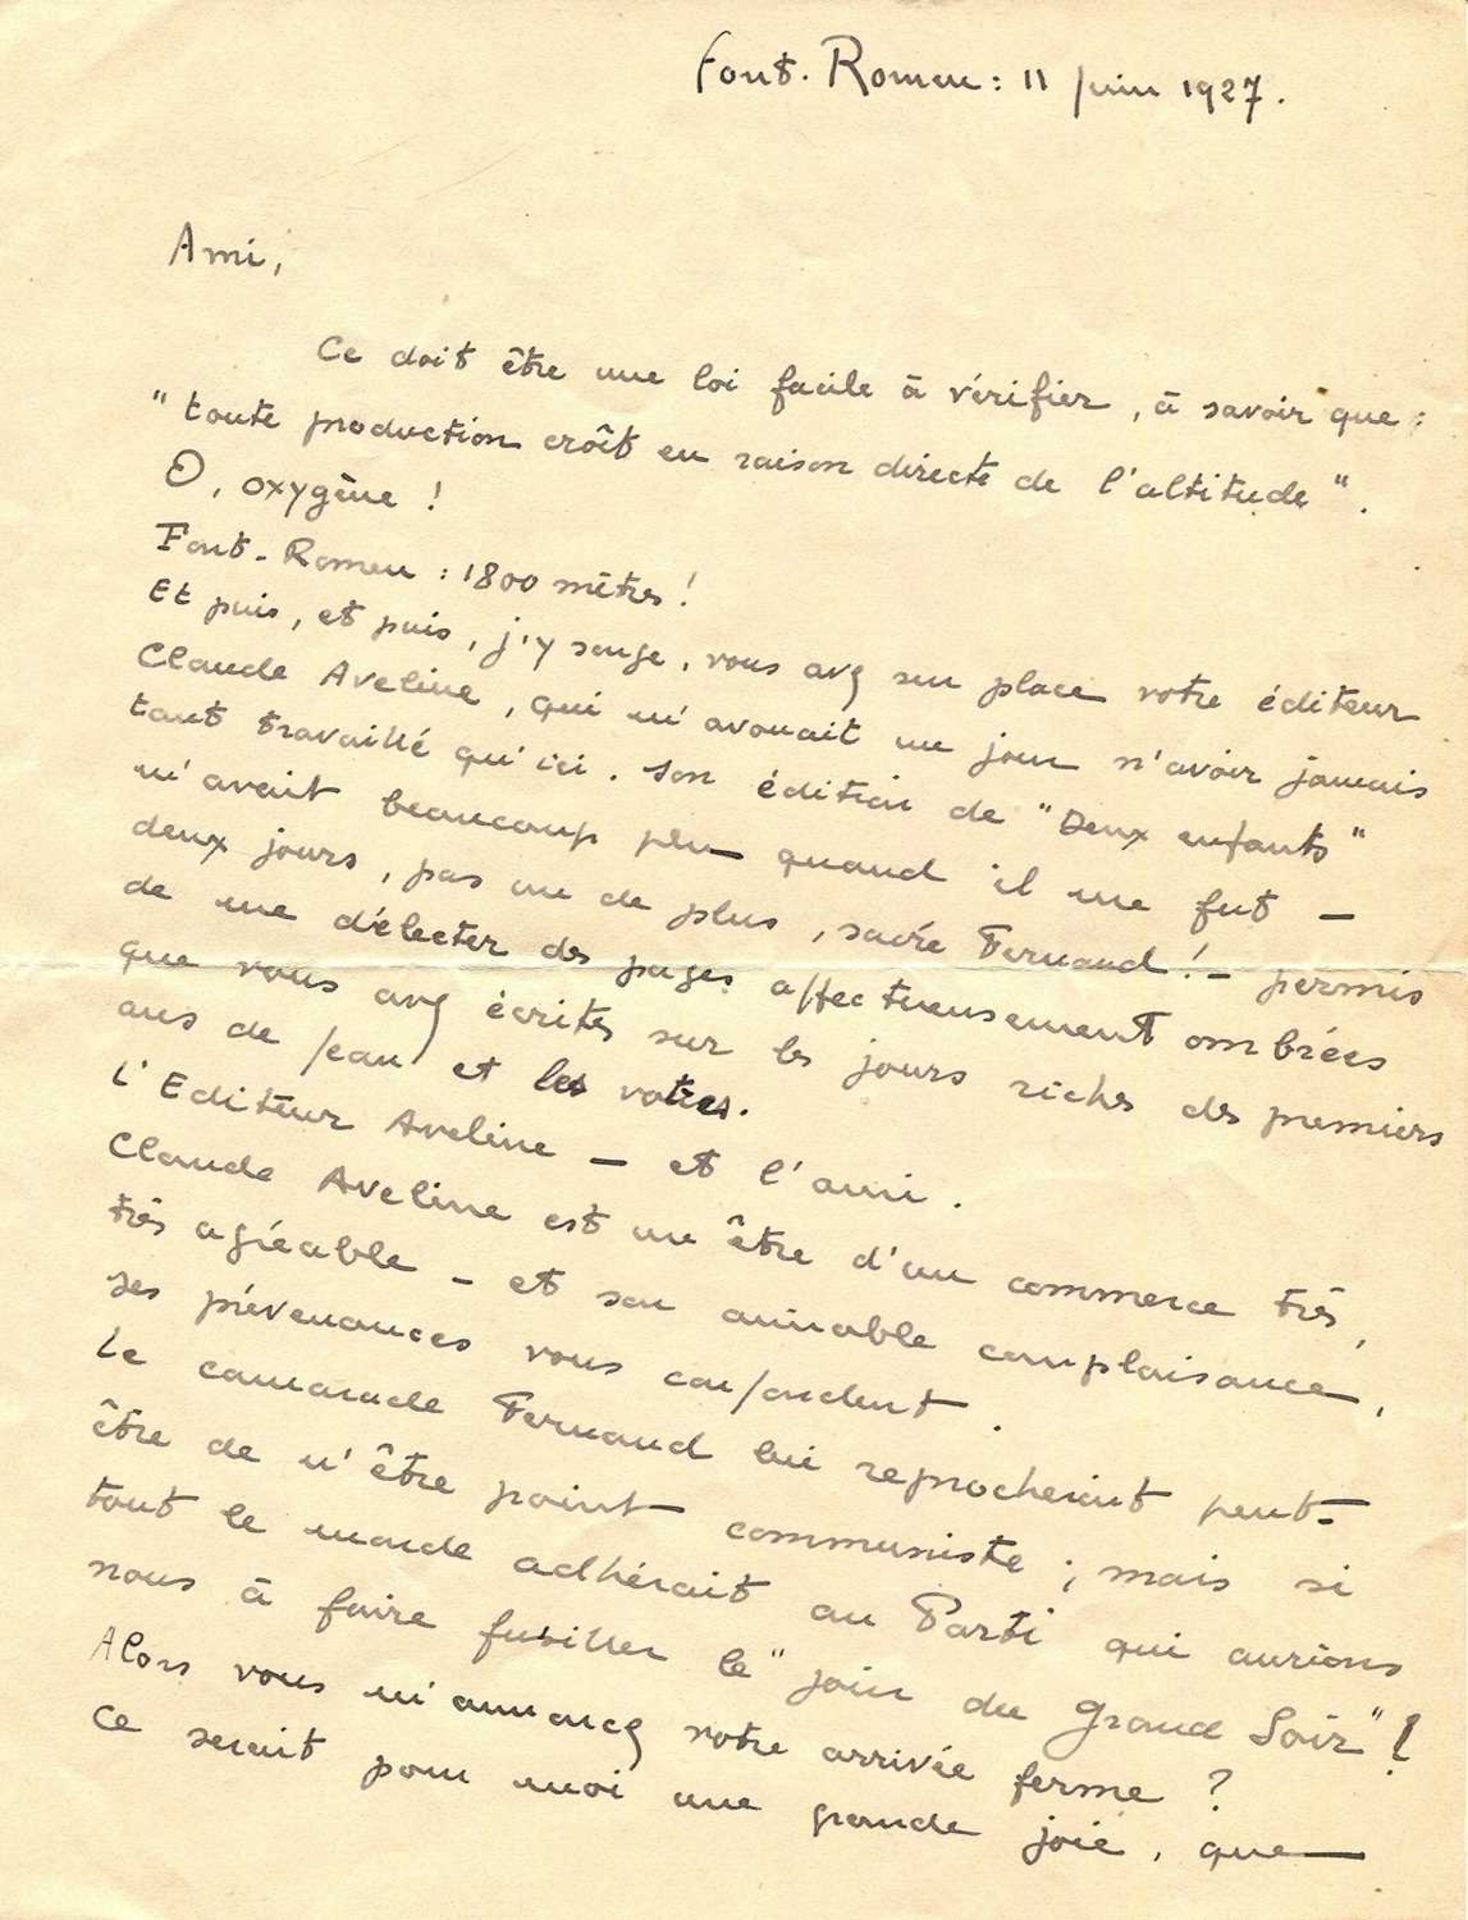 Font-Romeu : 11 juin 1927.
Ami,
Ce doit être une loi facile à vérifier, à savoir que :
"toute production croît en raison directe de l'altitude".
O, oxygène !
Font-Romeu : 1800 mètres !
Et puis, et puis, j'y songe, vous avez sur place votre éditeur
Claude Aveline, qui m'avouait un jour n'avoir jamais
tant travaillé qu'ici. Son édition de "Deux enfants"
m'avait beaucoup plu quand il me fut –
deux jours, pas un de plus, sacré Fernand ! – permis
de me délecter des pages affectueusement ombrées
que vous avez écrites sur les jours riches des premiers
ans de Jean et les votres.
L'Editeur Aveline – et l'ami.
Claude Aveline est un être d'un commerce très,
très agréable – et son aimable complaisance,
ses prévenances vous confondent.
Le camarade Fernand lui reprocherait peut-
être de n'être point communiste ; mais si
tout le monde adhérait au Parti qui aurions
nous à faire fusiller le "jour du Grand Soir" !
Alors vous m'annoncez votre arrivée ferme ?
Ce serait pour moi une grande joie, que